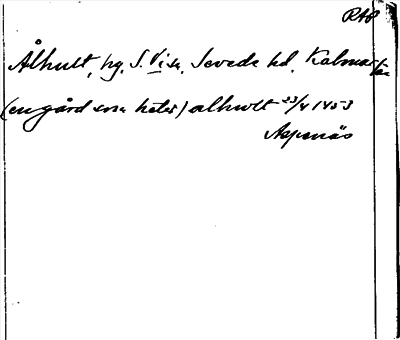 RAP
Ålhult, by, S. Vi sn, Sevede hd, Kalmar län
(en gård som heter) alhwlt 23/4 1453
Aspenäs